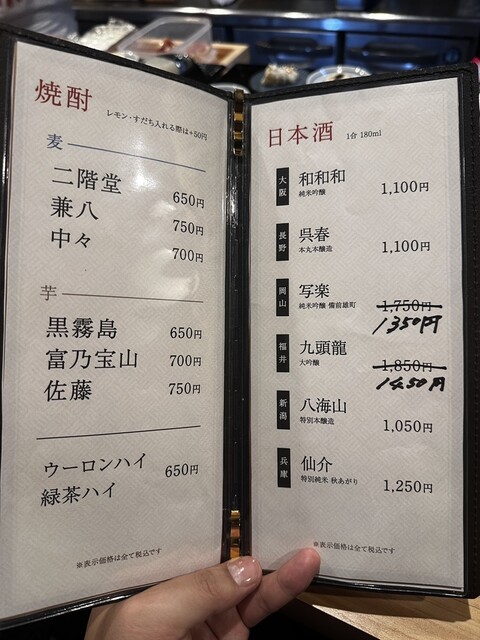 焼酎 レモン・すだち入れる際は+50円
麦
二階堂 650円
兼八 750円
中々 700円
芋
黒霧島 650円
富乃宝山 700円
佐藤 750円
ウーロンハイ 650円
緑茶ハイ
※表示価格は全て税込です
日本酒 1合 180ml
大阪 和和和 1,100円
純米吟醸
長野 呉春 1,100円
本丸本醸造
岡山 写楽 1,750円
純米吟醸 備前雄町 1350円
福井 九頭龍 1,850円
大吟醸 1450円
新潟 八海山 1,050円
特別本醸造
兵庫 仙介 1,250円
特別純米 秋あがり
※表示価格は全て税込です